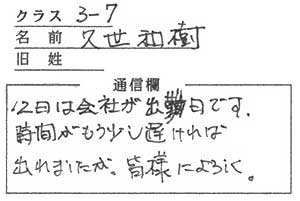 クラス 3-7
名前 久世和樹
旧姓
通信欄
12日は会社が出勤日です。
時間がもう少し遅ければ
出れましたが。皆様によろしく。